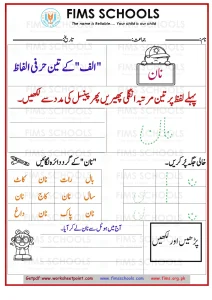 FIMS SCHOOLS
The name is Reliable .... Your child is our child
نام: جماعت: تاریخ:
"الف" کے تین حرفی الفاظ
نان
پہلے لفظ پر تین مرتبہ انگلی پھیریں پھر پینسل کی مدد سے لکھیں۔
نان
خالی جگہ پُر کریں۔
"نان" کے گرد دائرہ لگائیں
بال رات نان کاٹ
نان سال کاج نان
نان پاک نان داغ
پڑھیں اور لکھیں
آج میں ہوٹل سے نان لے کر آیا۔
Getpdf www.worksheetpoint.com www.fimsschools.com www.fims.org.pk